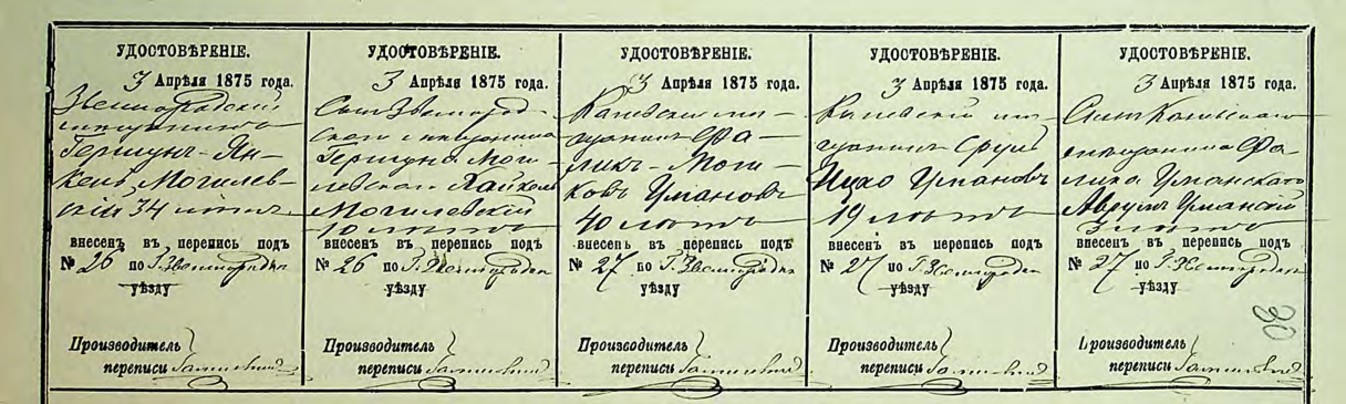 УДОСТОВѢРЕНІЕ.
3 Апрѣля 1875 года.
Звенигородскій
мещанинъ
Гершунъ-Ян-
кель Могилев-
скій 34 лѣтъ
внесенъ въ перепись подъ
№ 26 по Г. Звенигородкѣ
уѣзду
Производитель
переписи
УДОСТОВѢРЕНІЕ.
3 Апрѣля 1875 года.
Сынъ Звенигород-
скаго мещанина
Гершуна Моги-
левскаго Хайкель
Могилевскій
10 лѣтъ
внесенъ въ перепись подъ
№ 26 по Г. Звенигородкѣ
уѣзду
Производитель
переписи
УДОСТОВѢРЕНІЕ.
3 Апрѣля 1875 года.
Каневскій мѣ-
щанинъ Фа-
ликъ-Мош
ковъ Умановъ
40 лѣтъ
внесенъ въ перепись подъ
№ 27 по Г. Звенигородкѣ
уѣзду
Производитель
переписи
УДОСТОВѢРЕНІЕ.
3 Апрѣля 1875 года.
Каневскій мѣ-
щанинъ Сруль
Ицко Умановъ
19 лѣтъ
внесенъ въ перепись подъ
№ 27 по Г. Звенигородкѣ
уѣзду
Производитель
переписи
УДОСТОВѢРЕНІЕ.
3 Апрѣля 1875 года.
Сынъ Каневскаго
мещанина Фа-
лика Уманскаго
Аврумъ Уманскій
3 лѣтъ
внесенъ въ перепись подъ
№ 27 по Г. Звенигородкѣ
уѣзду
Производитель
переписи
30